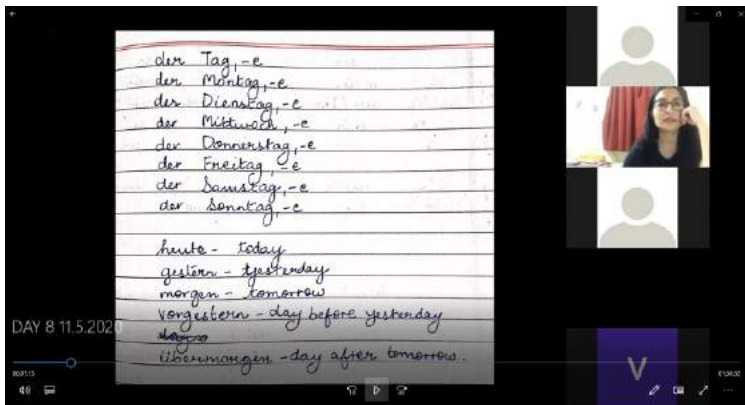 der Tag, -e
der Montag, -e
der Dienstag, -e
der Mittwoch, -e
der Donnerstag, -e
der Freitag, -e
der Samstag, -e
der Sonntag, -e
heute - today
gestern - yesterday
morgen - tomorrow
vorgestern - day before yesterday
übermorgen - day after tomorrow.
DAY 8 11.5.2020
V